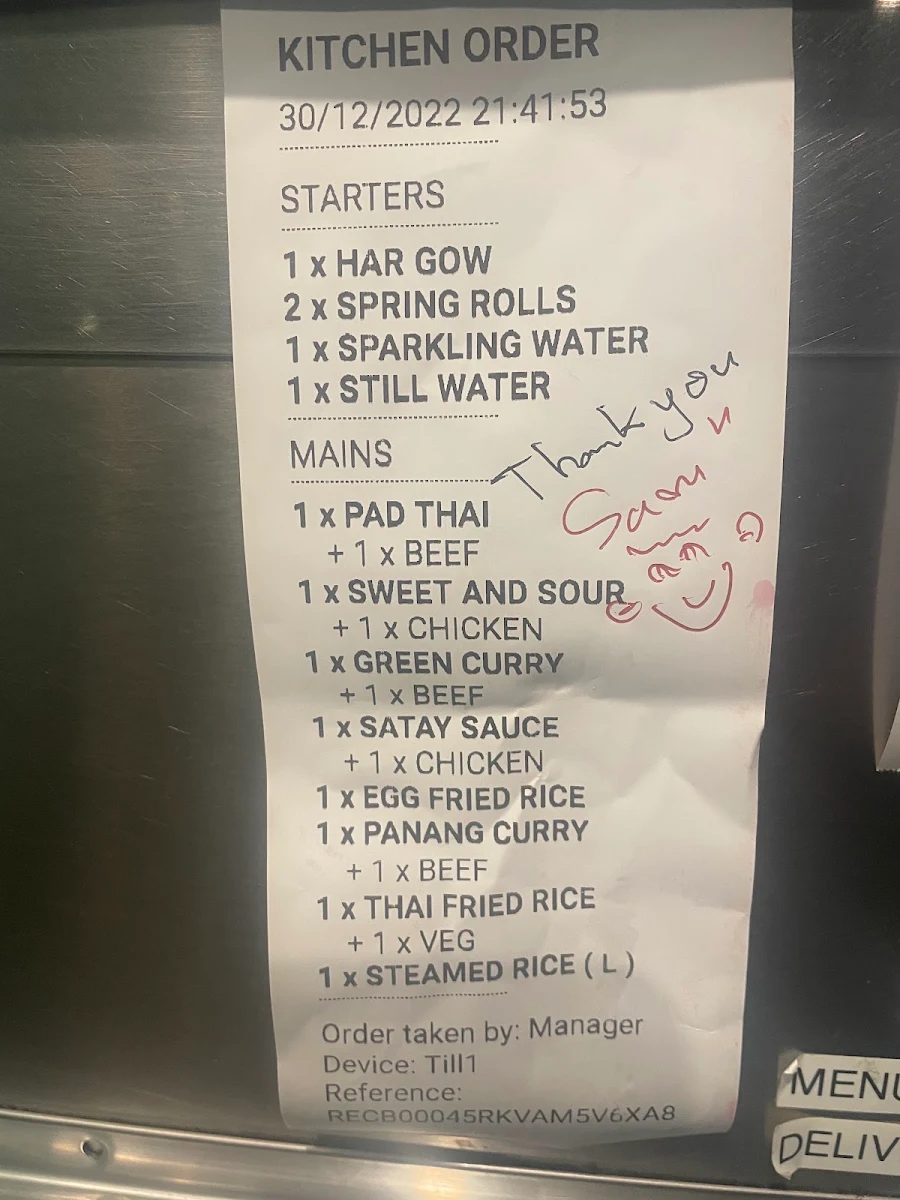 KITCHEN ORDER
30/12/2022 21:41:53
STARTERS
1 x HAR GOW
2 x SPRING ROLLS
1 x SPARKLING WATER
1 x STILL WATER
Thank you
MAINS
1 x PAD THAI
+ 1 x BEEF
1 x SWEET AND SOUR
+ 1 x CHICKEN
1 x GREEN CURRY
+ 1 x BEEF
1 x SATAY SAUCE
+ 1 x CHICKEN
1 x EGG FRIED RICE
1 x PANANG CURRY
+ 1 x BEEF
1 x THAI FRIED RICE
+ 1 x VEG
1 x STEAMED RICE ( L )
Order taken by: Manager
Device: Till1
Reference:
RECB00045RKVAM5V6XA8
MENU
DELIV